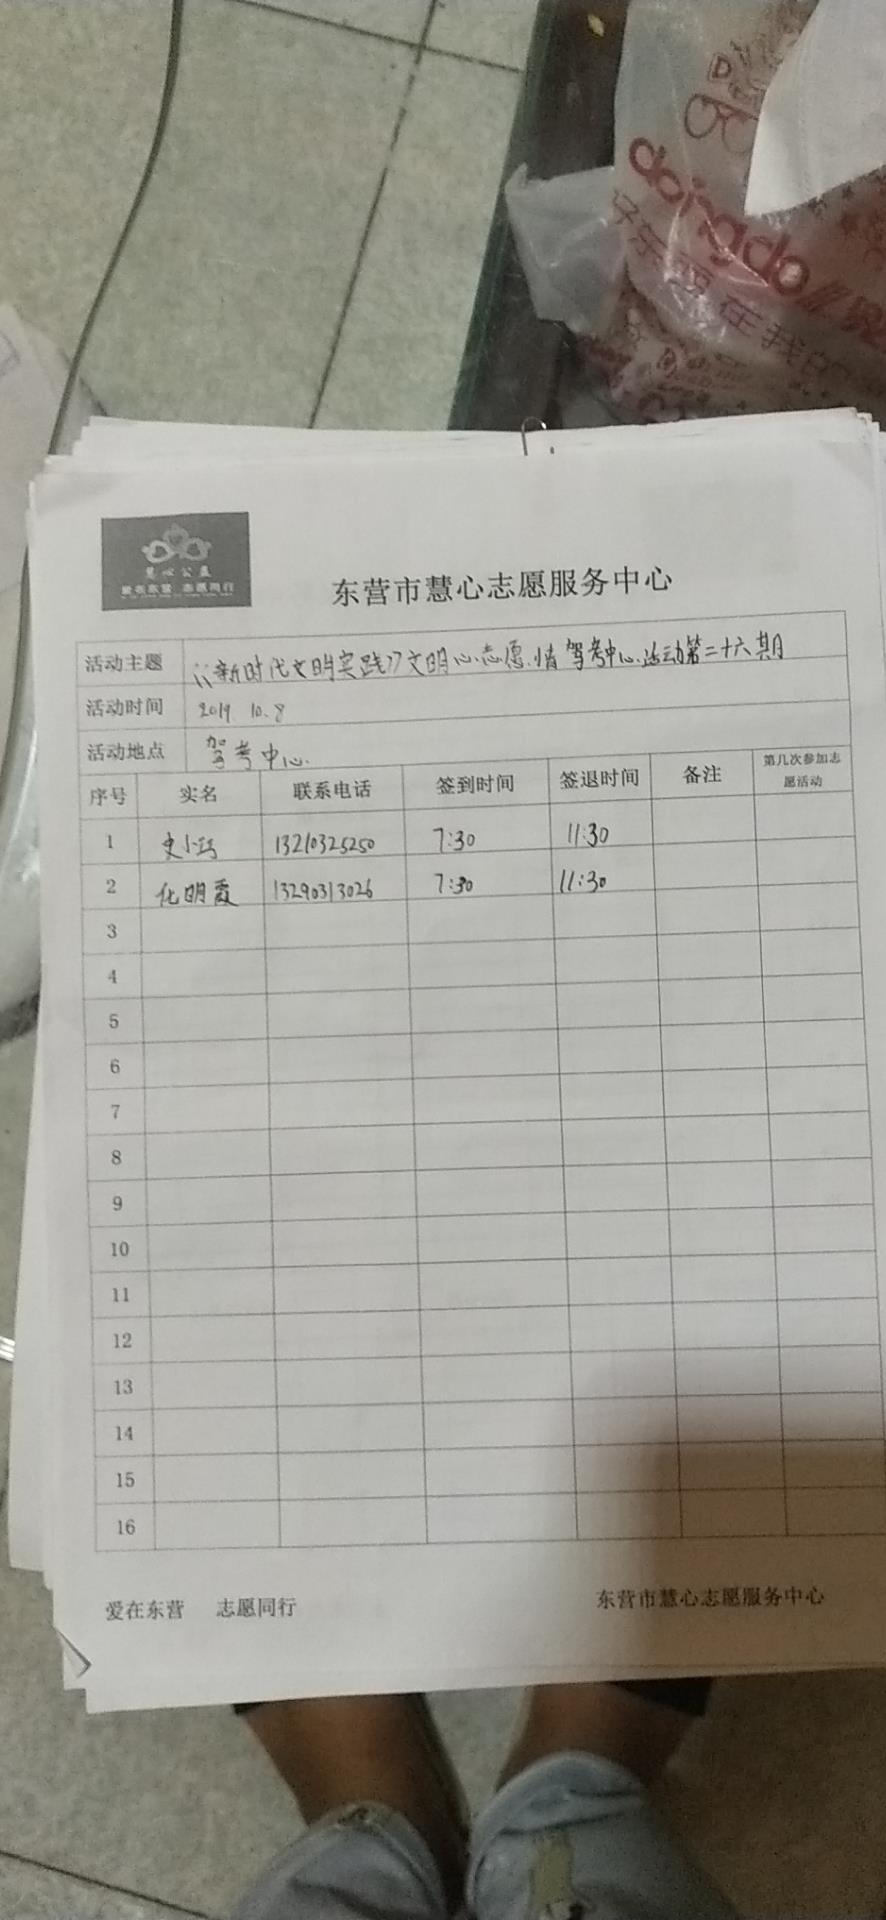 doingdo
慧心公益
爱在东营 志愿同行
东营市慧心志愿服务中心
活动主题 《新时代文明实践》文明心志愿情驾考中心活动第二十六期
活动时间 2019 10.8
活动地点 驾考中心
序号 实名 联系电话 签到时间 签退时间 备注 第几次参加志愿活动
1 史小巧 13210325250 7:30 11:30
2 化明霞 13290313026 7:30 11:30
3
4
5
6
7
8
9
10
11
12
13
14
15
16
爱在东营 志愿同行 东营市慧心志愿服务中心